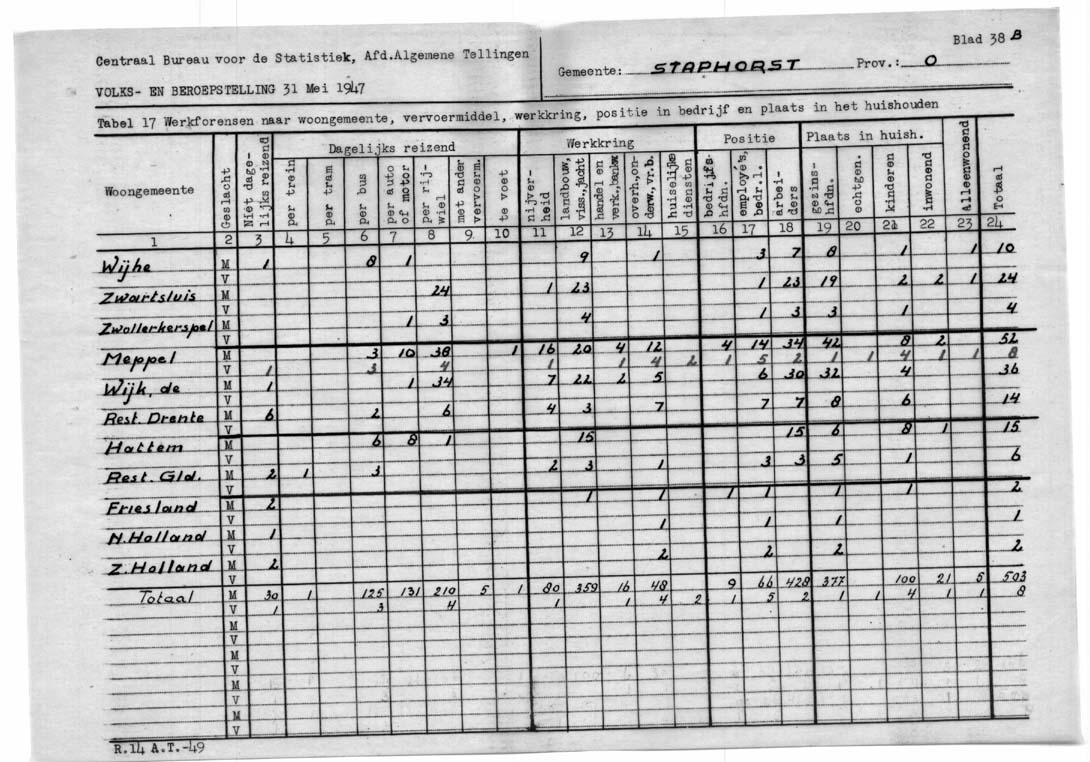 Blad 38 B
Centraal Bureau voor de Statistiek, Afd.Algemene Tellingen
Gemeente: STAPHORST Prov.: O
VOLKS- EN BEROEPSTELLING 31 Mei 1947
Tabel 17 Werkforensen naar woongemeente, vervoermiddel, werkkring, positie in bedrijf en plaats in het huishouden
Woongemeente Geslacht Niet dage-lijks reizend Dagelijks reizend Werkkring Positie Plaats in huish. Alleenwonend Totaal
per trein per tram per bus per auto of motor per rij-wiel met ander vervoerm. te voet nijver-heid landbouw, viss.,jacht handel en verk.,bankw. overh.,on-derw.,vr.b. huiselijke diensten bedrijfs-hfdn. employé's, bedr.l. arbei-ders gezins-hfdn. echtgen. kinderen inwonend
1 2 3 4 5 6 7 8 9 10 11 12 13 14 15 16 17 18 19 20 21 22 23 24
Wijhe M 1 8 1 9 1 3 7 8 1 1 10
V
Zwartsluis M 24 1 23 1 23 19 2 2 1 24
V
Zwollerkerspel M 1 3 4 1 3 3 1 4
V
Meppel M 3 10 38 1 16 20 4 12 4 14 34 42 8 2 52
V 1 3 4 1 1 4 2 1 5 2 1 1 4 1 1 8
Wijk, de M 1 1 34 7 22 2 5 6 30 32 4 36
V
Rest. Drente M 6 2 6 4 3 7 7 7 8 6 14
V
Hattem M 6 8 1 15 15 6 8 1 15
V
Rest. Gld. M 2 1 3 2 3 1 3 3 5 1 6
V
Friesland M 2 1 1 1 1 1 1 2
V
N.Holland M 1 1 1 1 1
V
Z.Holland M 2 2 2 2 2
V
Totaal M 30 1 125 131 210 5 1 80 359 16 48 9 66 428 377 100 21 5 503
V 1 3 4 1 1 4 2 1 5 2 1 1 4 1 1 8
M
V
M
V
M
V
M
V
R.14 A.T.-49